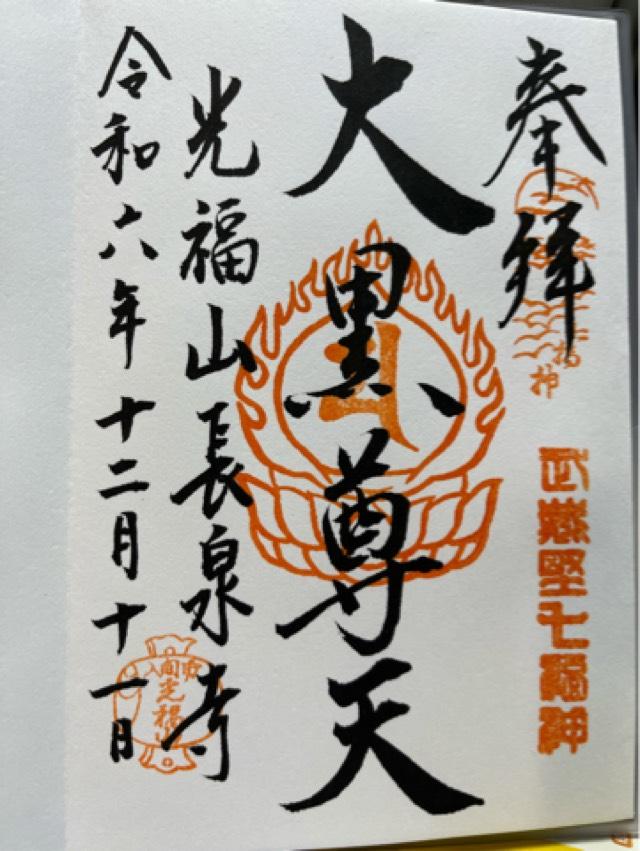 奉拝
武蔵野七福神
大黒尊天
光福山長泉寺
令和六年十二月十一日